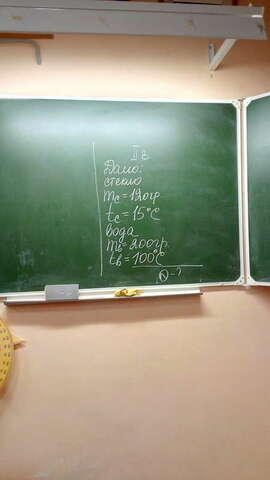 II з
Дано:
стекло
mс = 120гр
tс = 15°C
вода
mв = 200гр.
tв = 100°C